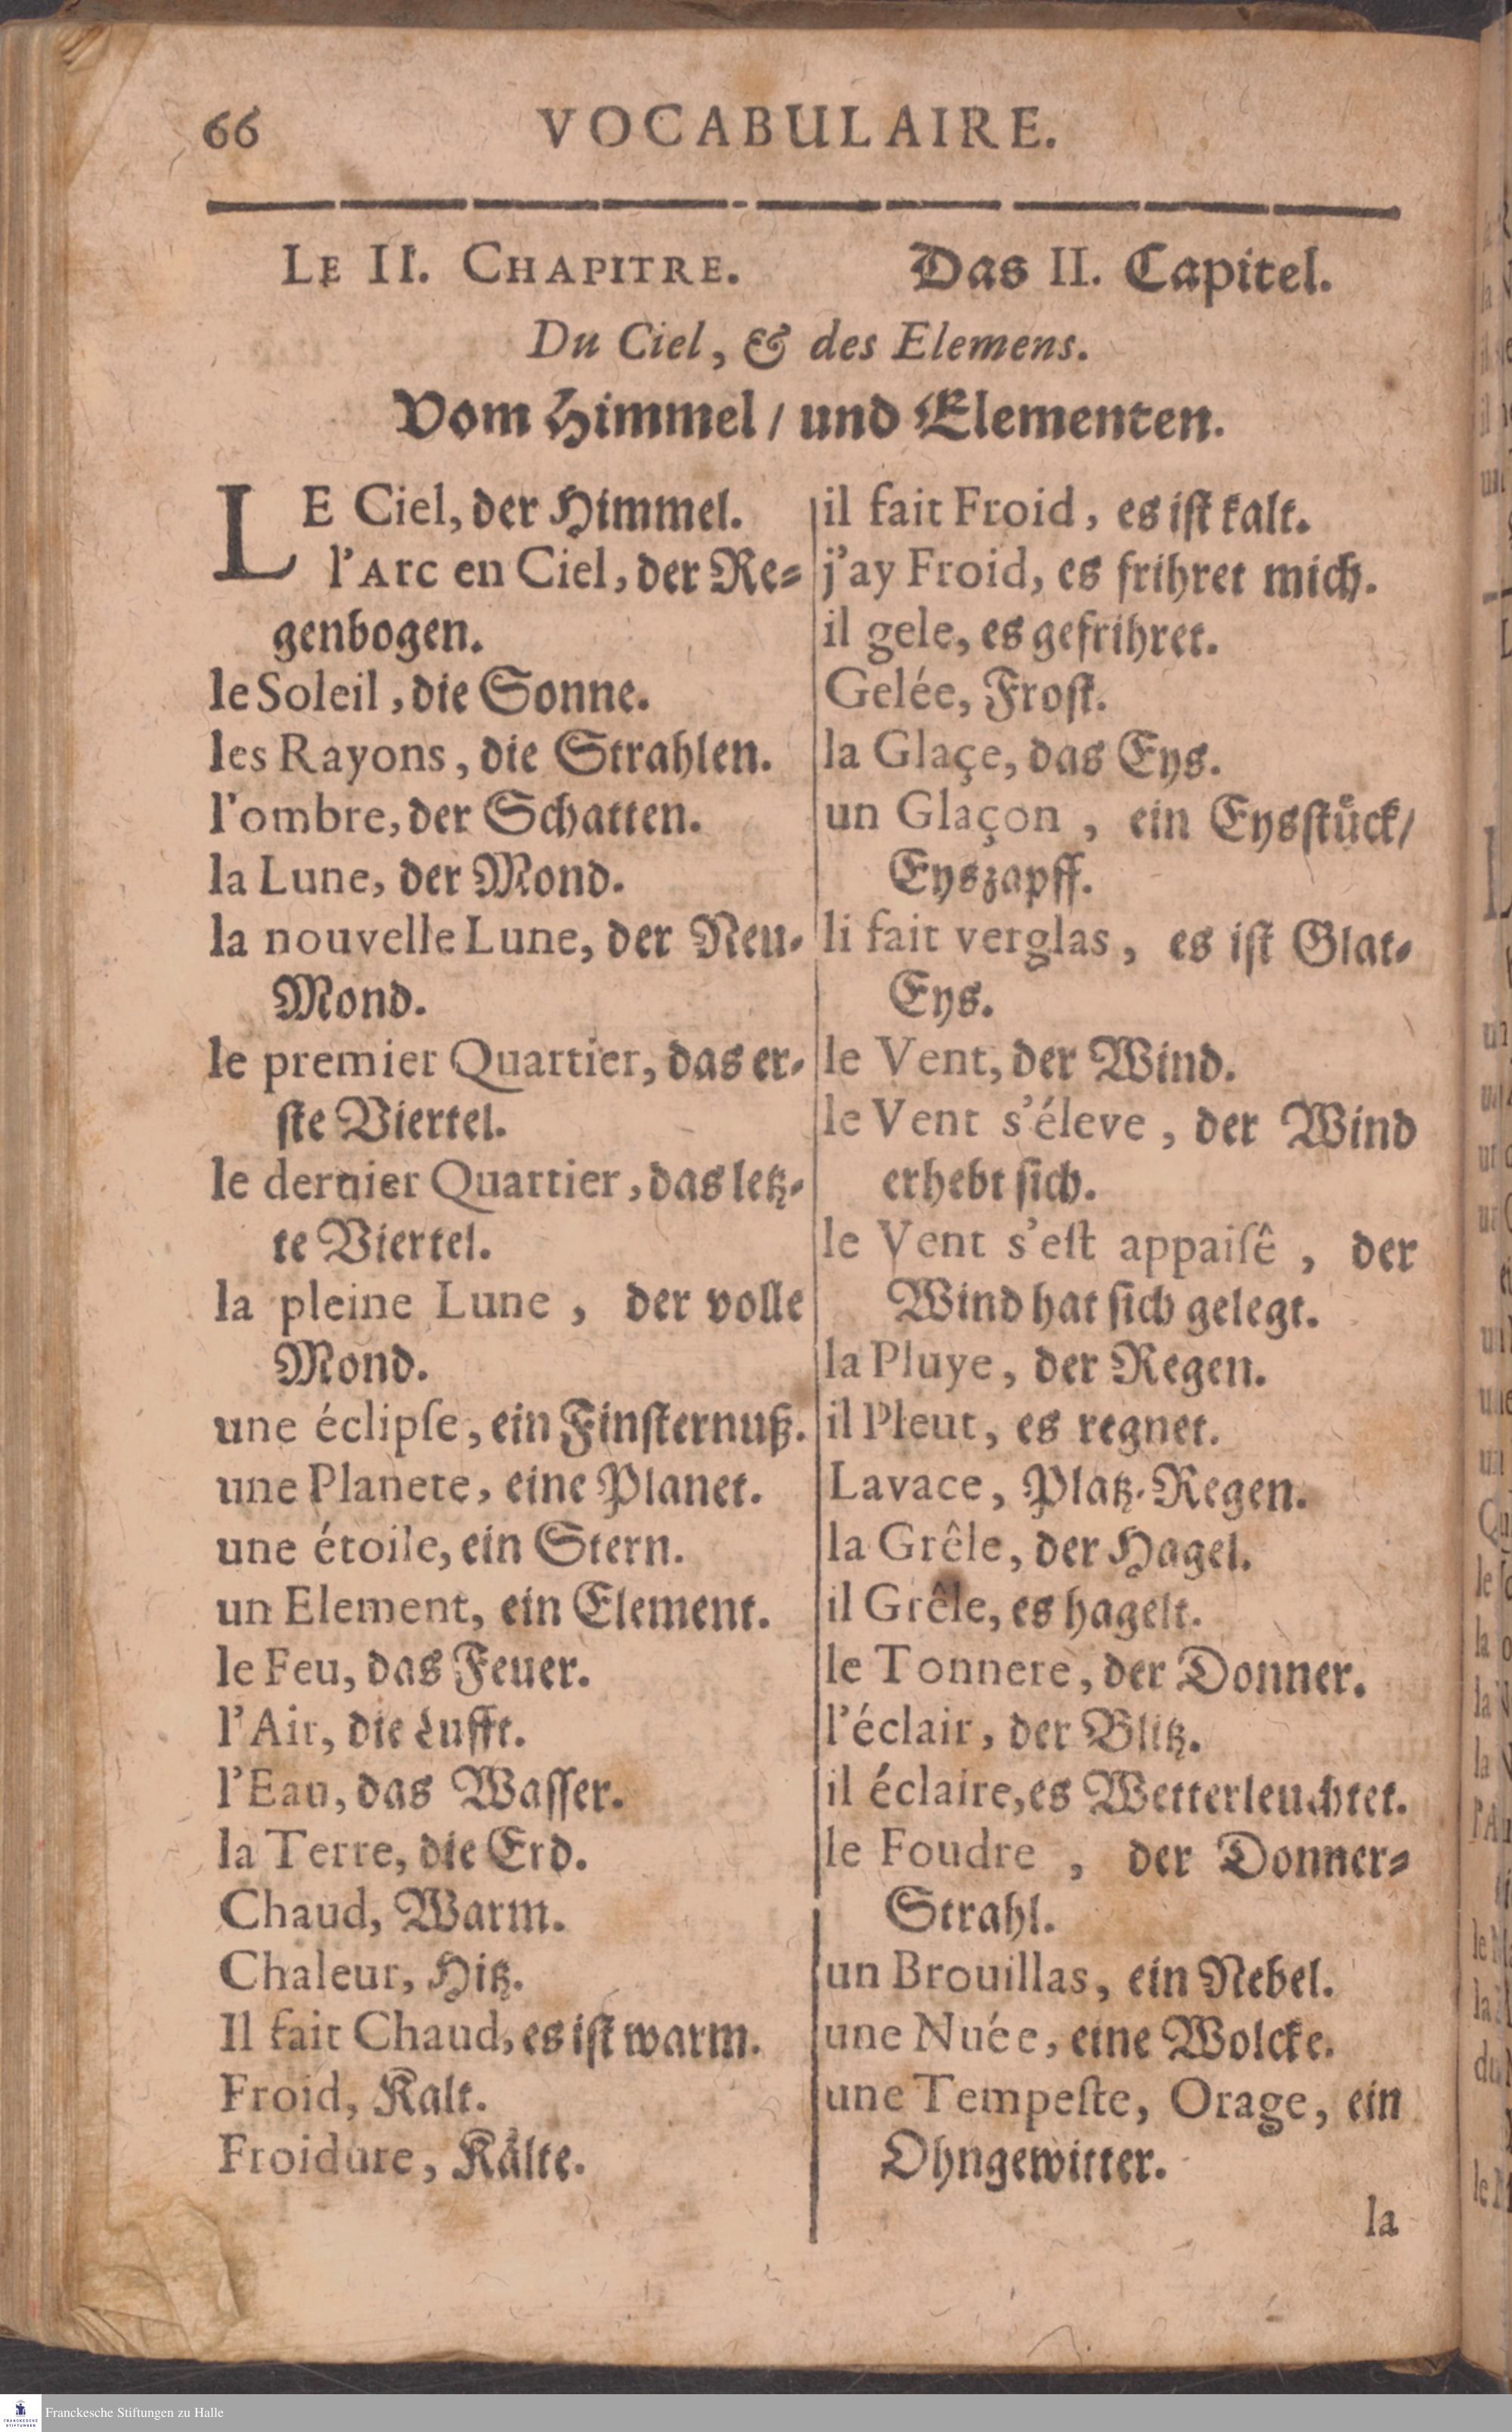 66 VOCABULAIRE.
LE II. CHAPITRE. Das II. Capitel.
Du Ciel, & des Elemens.
Vom Himmel / und Elementen.
LE Ciel, der Himmel.
l'Arc en Ciel, der Re⸗
genbogen.
le Soleil, die Sonne.
les Rayons, die Strahlen.
l'ombre, der Schatten.
la Lune, der Mond.
la nouvelle Lune, der Neu⸗
Mond.
le premier Quartier, das er⸗
ſte Viertel.
le dernier Quartier, das letz⸗
te Viertel.
la pleine Lune, der volle
Mond.
une éclipſe, ein Finſternuß.
une Planete, eine Planet.
une étoile, ein Stern.
un Element, ein Element.
le Feu, das Feuer.
l'Air, die Lufft.
l'Eau, das Waſſer.
la Terre, die Erd.
Chaud, Warm.
Chaleur, Hitz.
Il fait Chaud, es iſt warm.
Froid, Kalt.
Froidure, Kaͤlte.
il fait Froid, es iſt kalt.
j'ay Froid, es frihret mich.
il gele, es gefrihret.
Gelée, Froſt.
la Glaçe, das Eys.
un Glaçon, ein Eysſtuͤck/
Eyszapff.
li fait verglas, es iſt Glat⸗
Eys.
le Vent, der Wind.
le Vent s'éleve, der Wind
erhebt ſich.
le Vent s'eſt appaiſê, der
Wind hat ſich gelegt.
la Pluye, der Regen.
il Pleut, es regnet.
Lavace, Platz⸗Regen.
la Grêle, der Hagel.
il Grêle, es hagelt.
le Tonnere, der Donner.
l'éclair, der Blitz.
il éclaire, es Wetterleuchtet.
le Foudre, der Donner⸗
Strahl.
un Brouillas, ein Nebel.
une Nuée, eine Wolcke.
une Tempeſte, Orage, ein
Ohngewitter.
la
Franckesche Stiftungen zu Halle